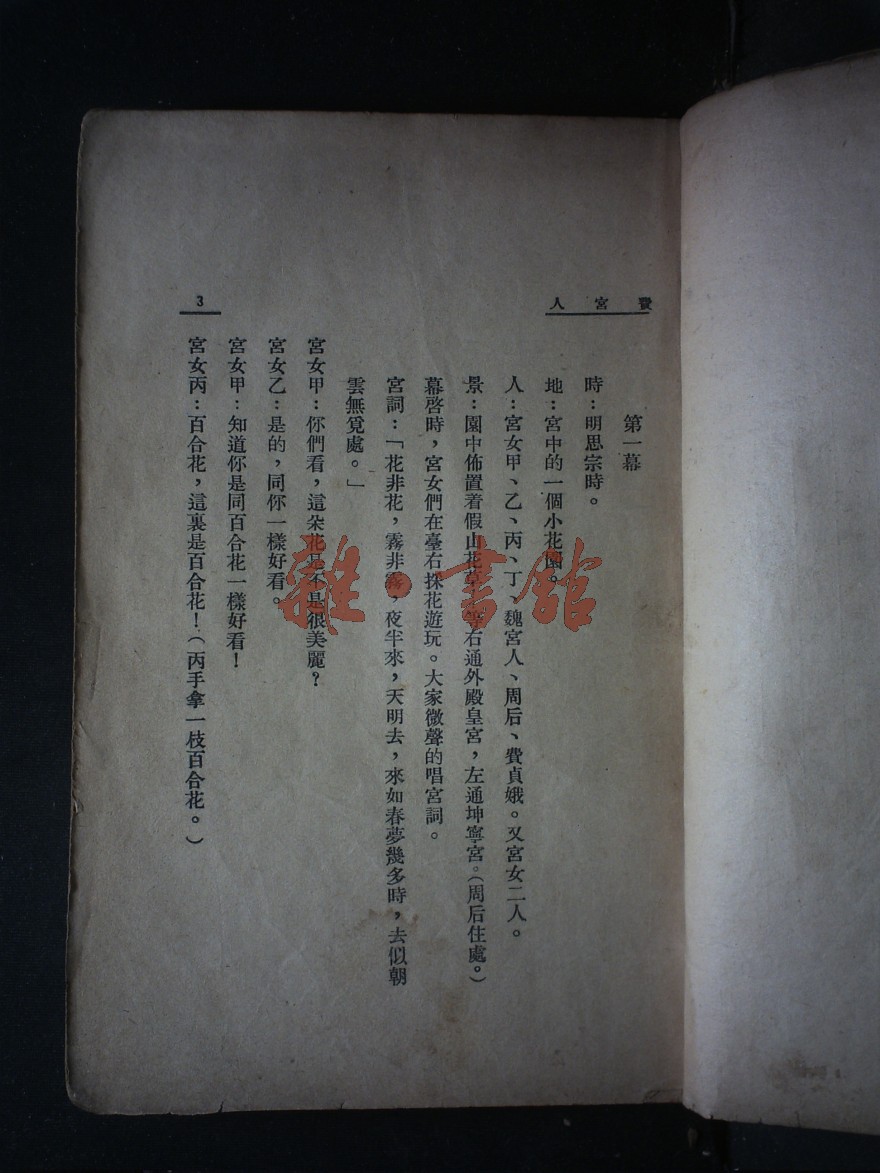 費宮人
第一幕
時：明思宗時。
地：宮中的一個小花園。
人：宮女甲、乙、丙、丁、魏宮人、周后、費貞娥。又宮女二人。
景：園中佈置着假山花草，等右通外殿皇宮，左通坤寧宮。（周后住處。）
幕啓時，宮女們在臺右採花遊玩。大家微聲的唱宮詞。
宮詞：「花非花，霧非霧，夜半來，天明去，來如春夢幾多時，去似朝
雲無覓處。」
宮女甲：你們看，這朵花是不是很美麗？
宮女乙：是的，同你一樣好看。
宮女甲：知道你是同百合花一樣好看！
宮女丙：百合花，這裏是百合花！（丙手拿一枝百合花。）
3
雜·書館